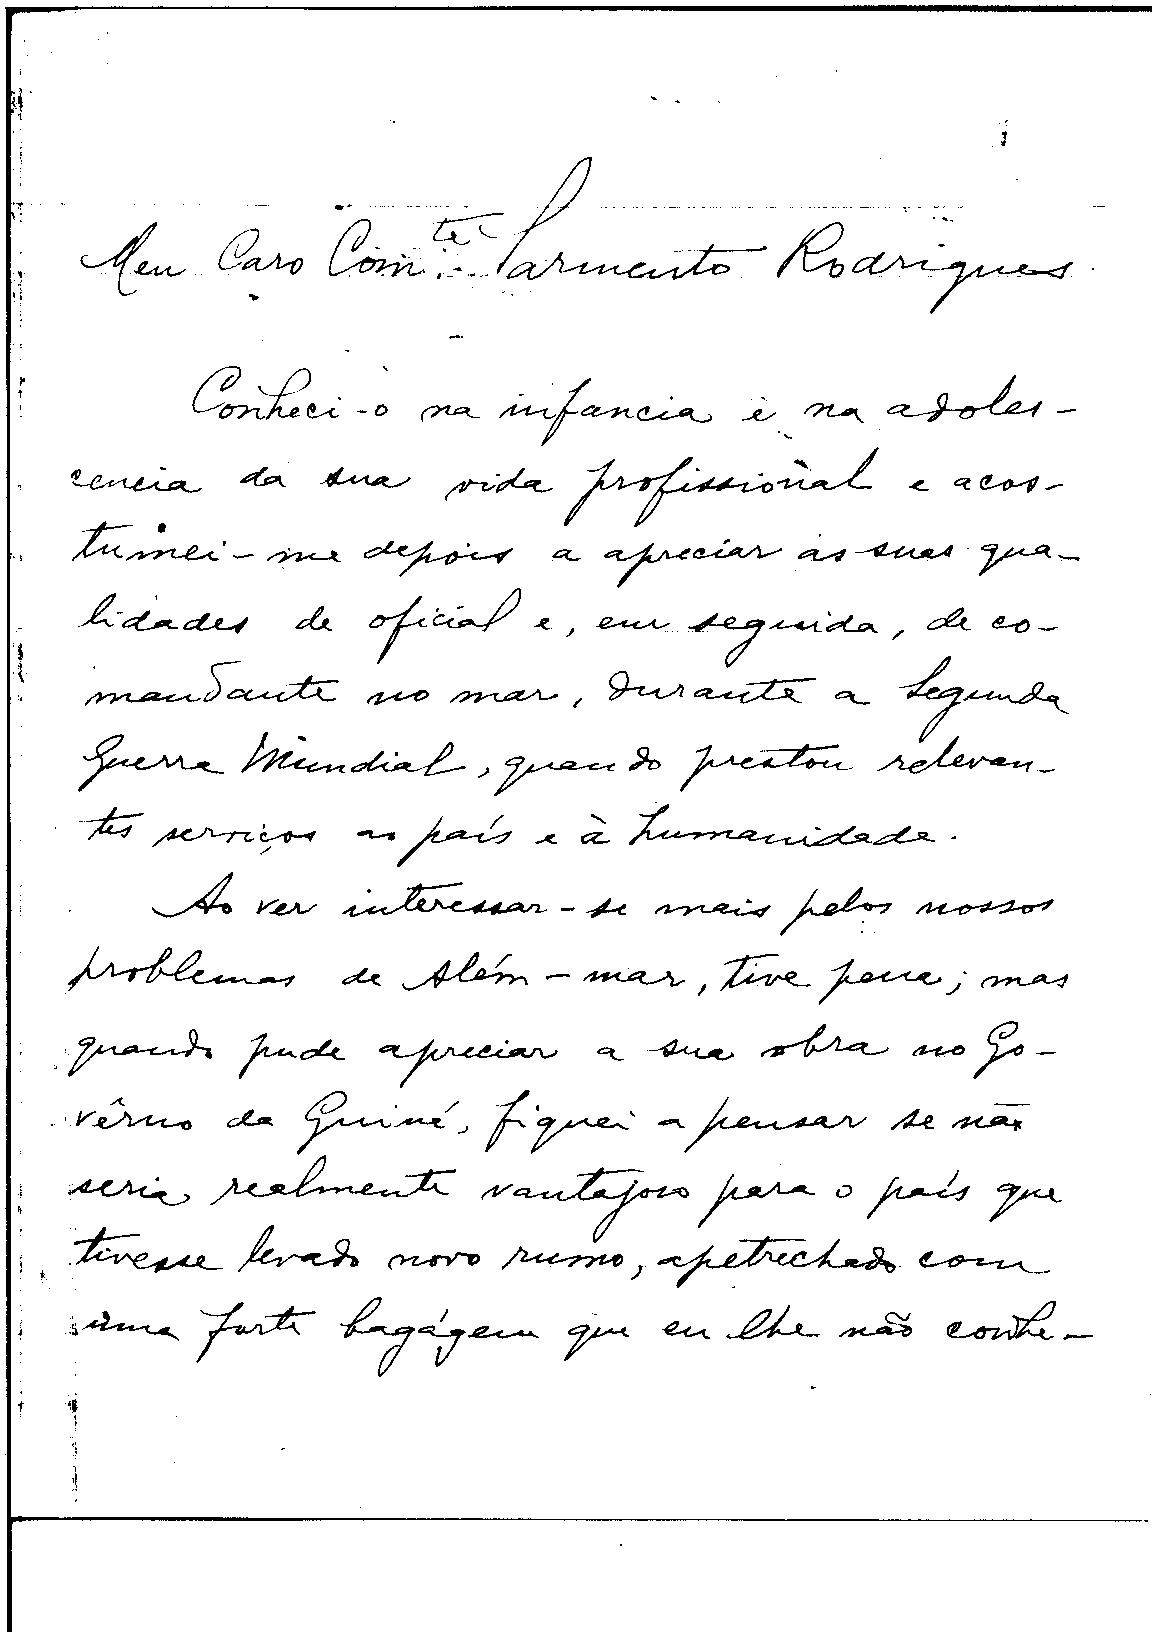 Meu Caro Com.te Sarmento Rodrigues
Conheci-o na infancia e na adoles-
cencia da sua vida profissional e acos-
tumei-me depois a apreciar as suas qua-
lidades de oficial e, em seguida, de co-
mandante no mar, durante a Segunda
Guerra Mundial, quando prestou relevan-
tes serviços ao país e à humanidade.
Ao ver interessar-se mais pelos nossos
problemas de Além-mar, tive pena; mas
quando pude apreciar a sua obra no Go-
vêrno da Guiné, fiquei a pensar se não
seria realmente vantajoso para o país que
tivesse levado novo rumo, apetrechado com
uma forte bagágem que eu lhe não conhe-